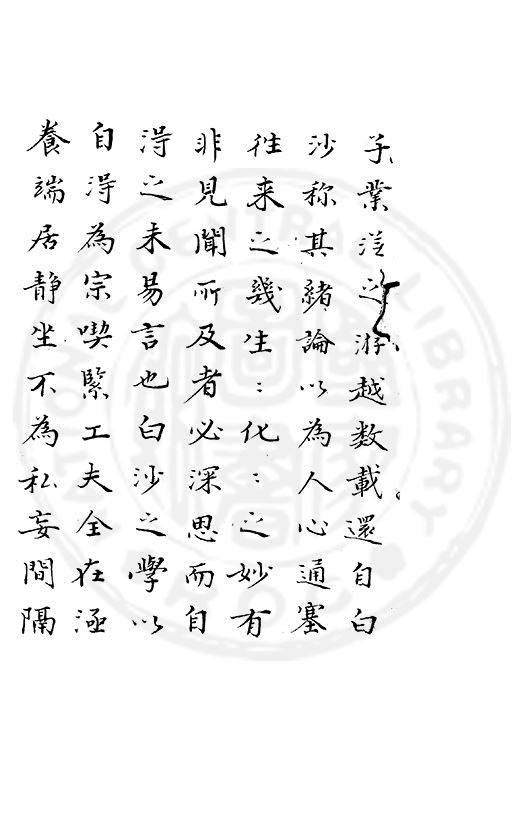 子業從之游越數載還自白
沙称其緒論以為人心通塞
徃来之幾生:化:之妙有
非見聞所及者必深思而自
淂之未易言也白沙之學以
自淂為宗喫緊工夫全在涵
養端居静坐不為私妄間隔
NATIONAL CENTRAL LIBRARY